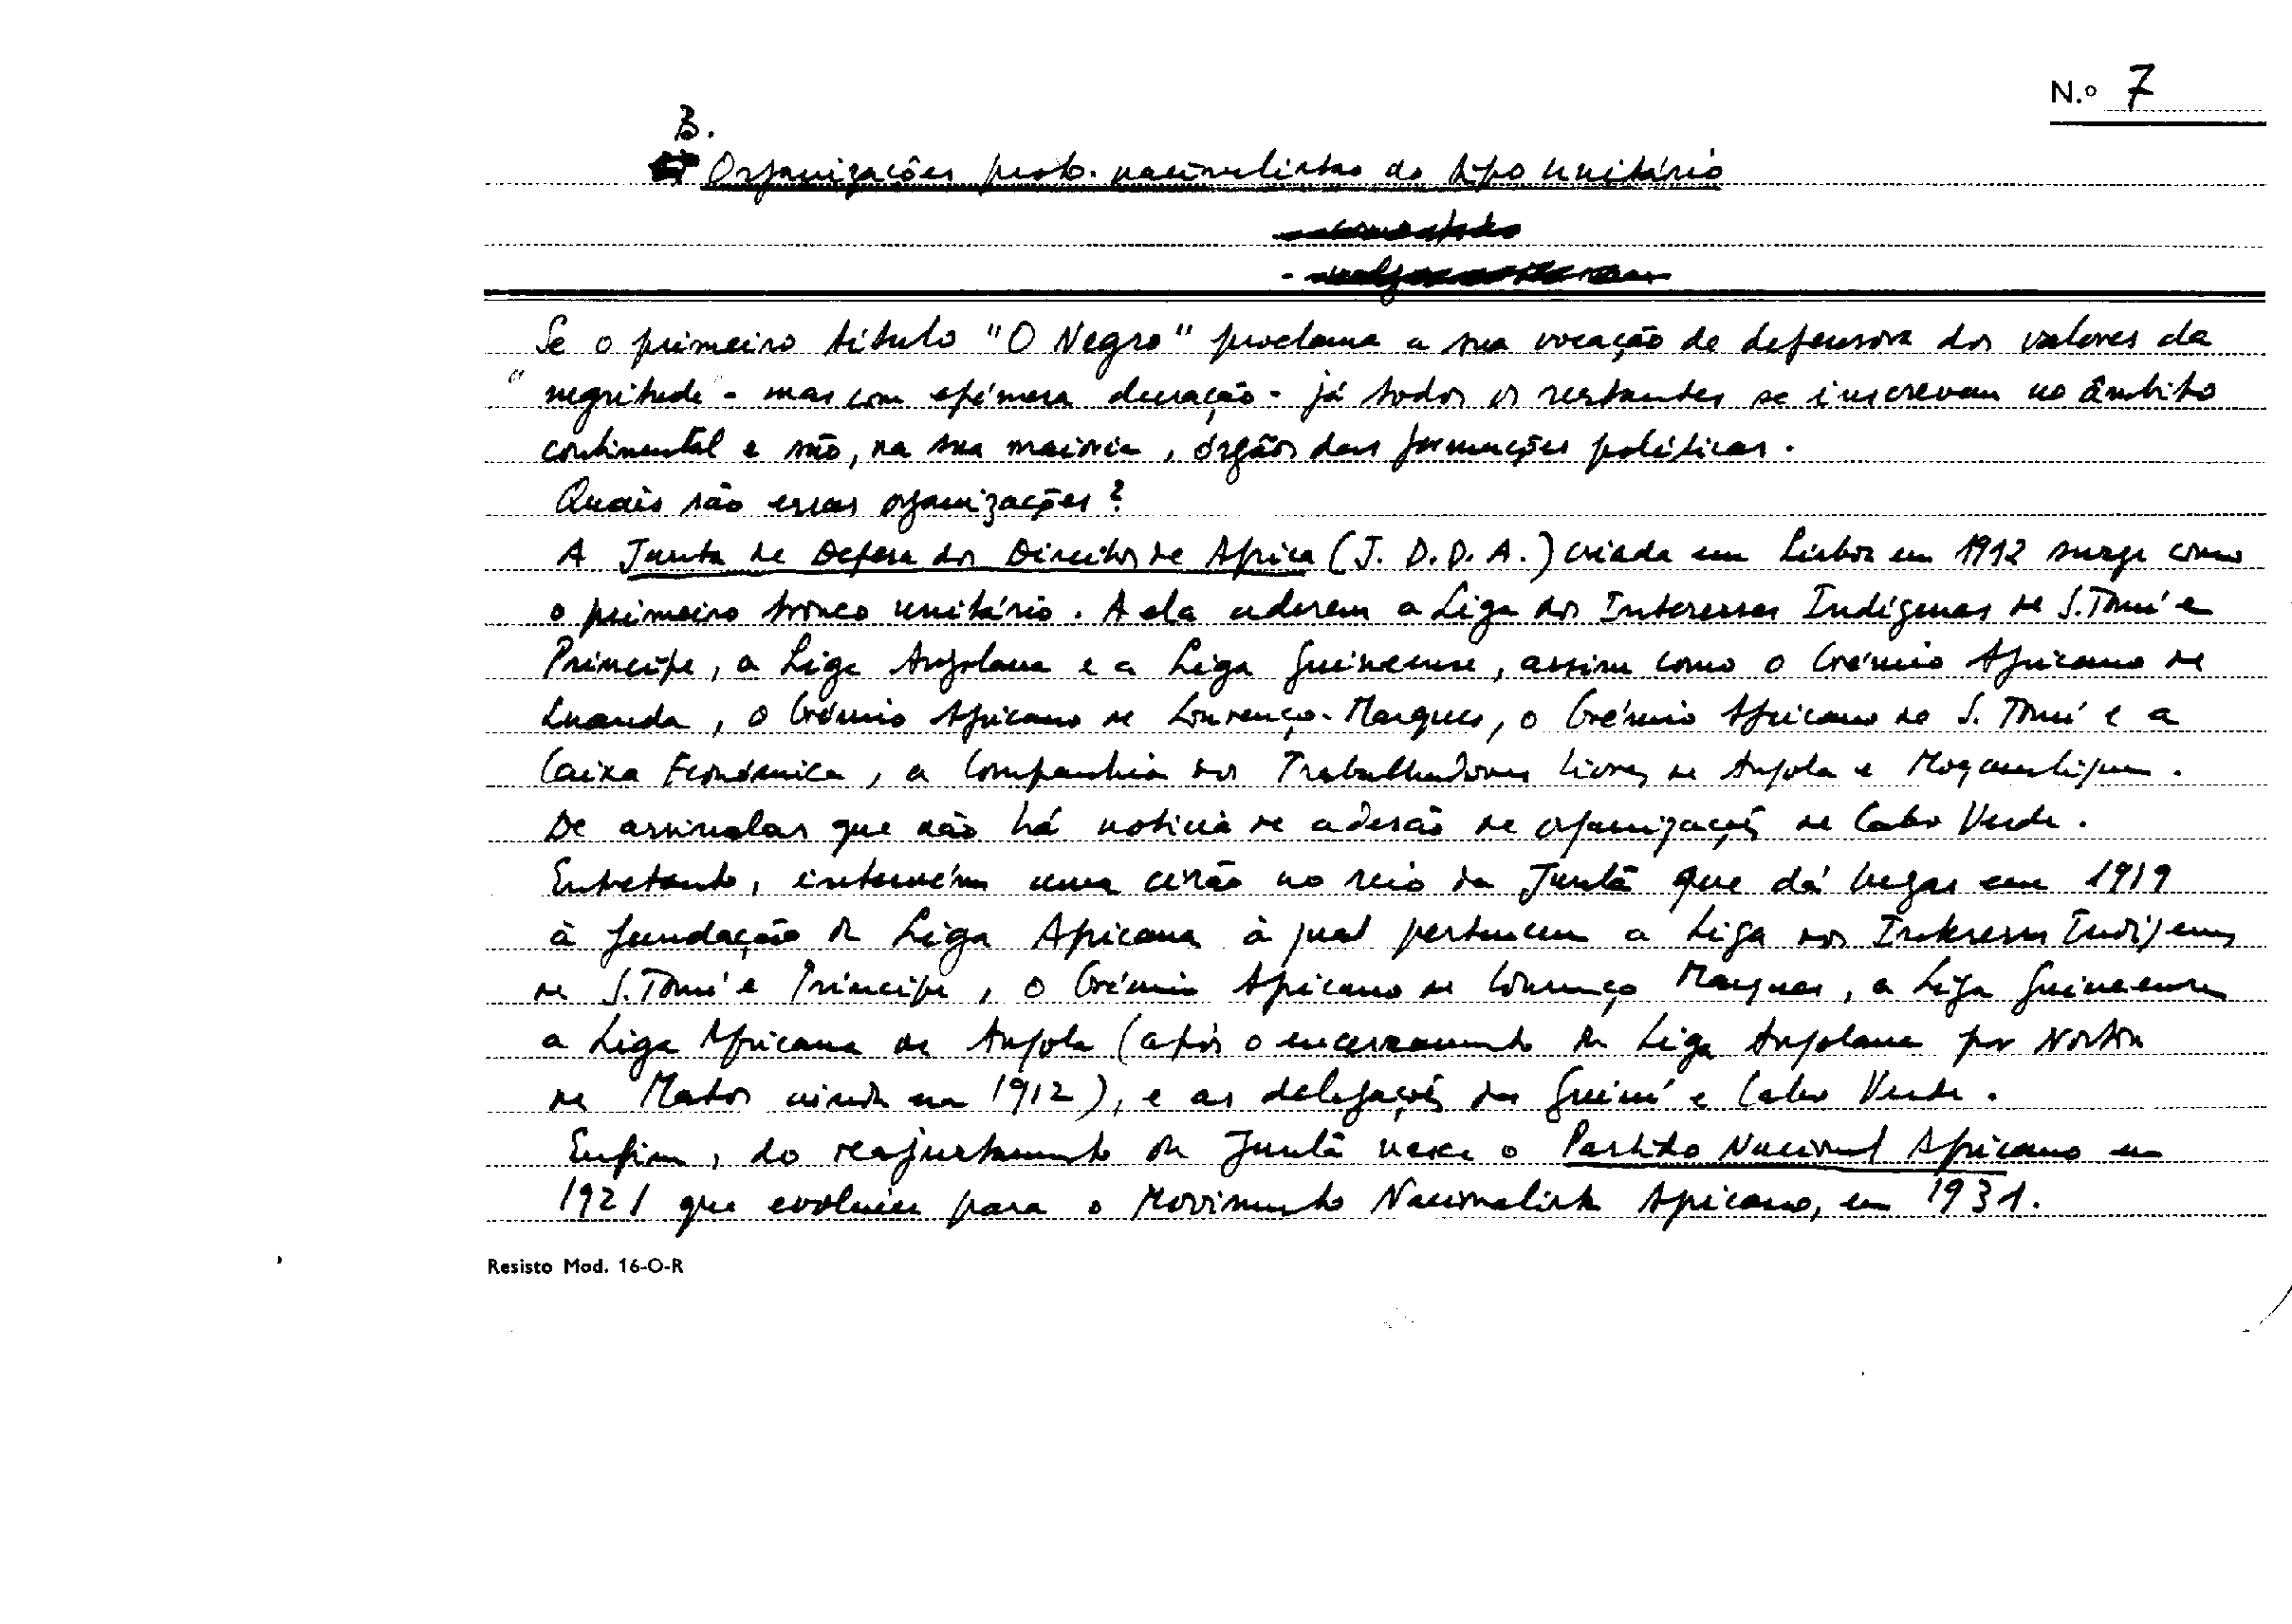 N.º 7
B.
Organizações proto-nacionalistas de tipo unitário
Se o primeiro título "O Negro" proclama a sua vocação de defensora dos valores da
"negritude" - mas com efémera duração - já todos os restantes se inscrevem no âmbito
continental e são, na sua maioria, órgãos das formações políticas.
Quais são essas organizações?
A Junta de Defesa dos Direitos de Africa (J. D. D. A.) criada em Lisboa em 1912 surge como
o primeiro tronco unitário. A ela aderem a Liga dos Interesses Indígenas de S. Tomé e
Príncipe, a Liga Angolana e a Liga Guineense, assim como o Grémio Africano de
Luanda, o Grémio Africano de Lourenço-Marques, o Grémio Africano de S. Tomé e a
Caixa Económica, a Companhia dos Trabalhadores Livres de Angola e Moçambique.
De assinalar que não há notícia de adesão de organizações de Cabo Verde.
Entretanto, intervém uma cisão no seio da Junta que dá lugar em 1919
à fundação da Liga Africana à qual pertencem a Liga dos Interesses Indígenas
de S. Tomé e Príncipe, o Grémio Africano de Lourenço Marques, a Liga Guineense
a Liga Africana de Angola (após o encerramento da Liga Angolana por Norton
de Matos ainda em 1912), e as delegações da Guiné e Cabo Verde.
Enfim, do reajustamento da Junta nasce o Partido Nacional Africano em
1921 que evoluiu para o Movimento Nacionalista Africano, em 1931.
Resisto Mod. 16-O-R